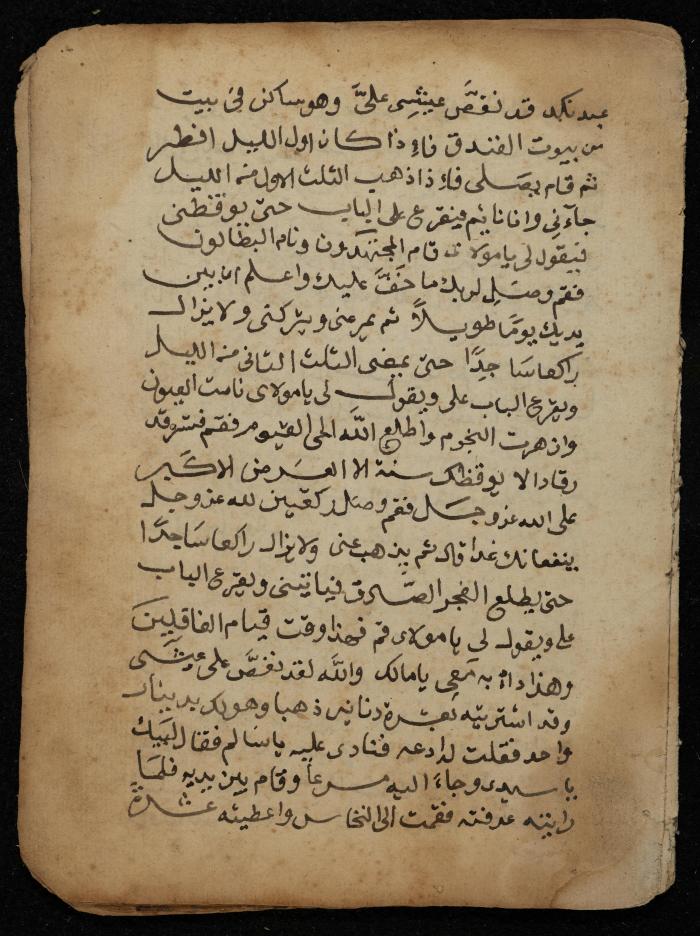 عبد نكد قد نغصَّ عيشى علىَّ وهو ساكن فى بيت
من بيوت الفندق فاءِذا كان اول الليل افطر
ثم قام يصلى فاءِذا ذهب الثلث الاول منه الليل
جآءَنى وانا نايم فيقرع على الباب حتى يوقظنى
فيقول لى يا مولاى قام المجتهدون ونام البطالون
فقم وصلِ لربك ما خفَّ عليك واعلم ان بين
يديك يومًا طويلاً ثم يمر عنى ويتركنى ولا يزال
راكعا ساجدًا حتى يمضى الثلث الثانى منه الليل
ويقرع الباب على ويقول لى يا مولاى نامت العيون
وازهرت النجوم واطلع اللَّه الحى القيوم فقم فسترقد
رقادا لا يوقظك سنة الا العرض الاكبر
على الله عز وجل فقم وصل ركعتين لله عز وجل
ينفعانك غدا قال ثم يذهب عنى ولا يزال راكعا ساجدًا
حتى يطلع الفجر الصَّادق فياتينى ويقرع الباب
على ويقول لى يا مولاى قم فهذا وقت قيام الغافلين
وهذا دائه معى يا مالك واللَّه لقد نغصَّ على عيشى
وقد اشتريته بعشرة دنانير ذهبا وهو لك بدينار
واحد فقلت له ادعه فنادى عليه يا سالم فقال لبيك
يا سيدى وجاءَ اليه مسرعاً وقام بين يديه فلما
رايته عرفته فقمت الى النخاس واعطيته عشرة